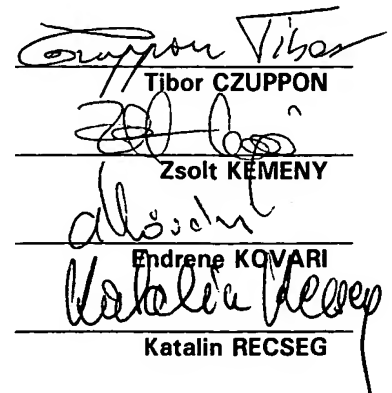 Czuppon Tibor
Tibor CZUPPON
Zsolt KEMENY
Endrene KOVARI
Katalin Recseg
Katalin RECSEG